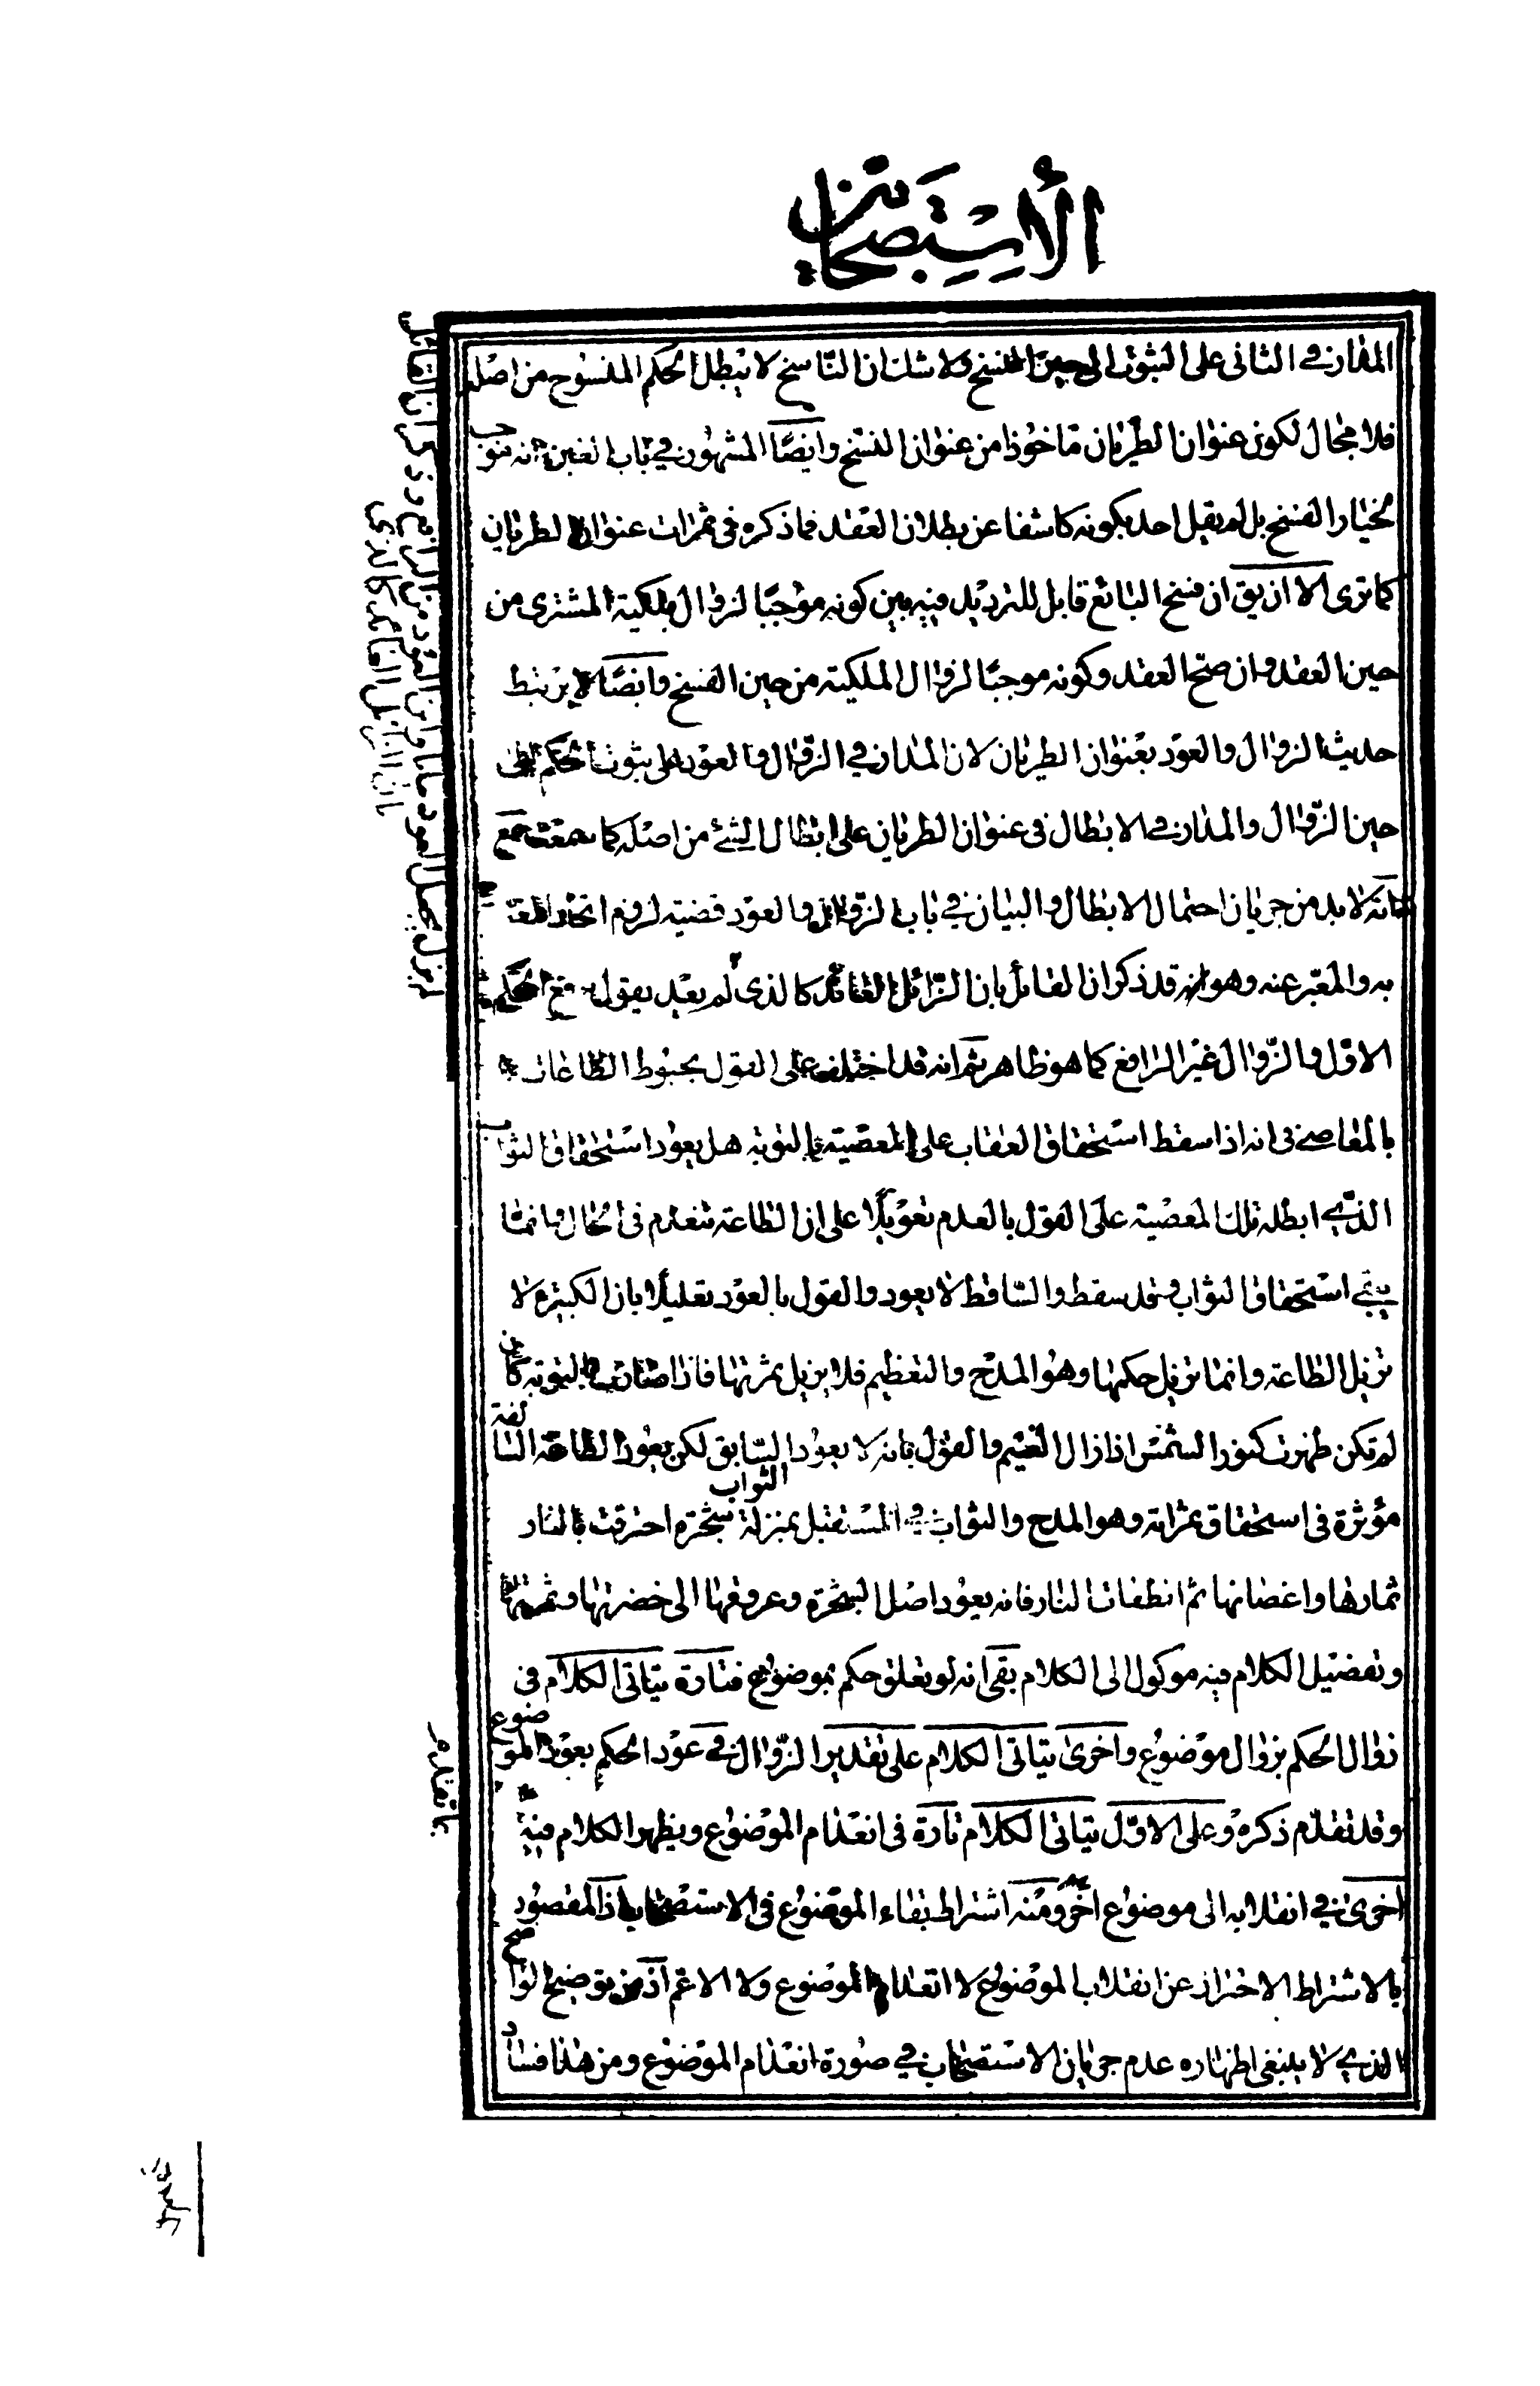 الاستصحاب
المدار في الثانى على الثبوت الى حين النسخ ولا شك ان الناسخ لا يبطل الحكم المنسوخ من اصله
فلا مجال لكون عنوان الطريان ماخوذا من عنوان النسخ وايضا المشهور في باب الغبن انه موجب
لخيار الفسخ بل لم يقل احد بكونه كاشفا عن بطلان العقد فما ذكره في ثمرات عنوان الطريان
كما ترى الا ان يق ان فسخ البائع قابل للترديد فيه بين كونه موجبا لزوال ملكية المشترى من
حين العقد وان صح العقد وكونه موجبا لزوال الملكية من حين الفسخ وايضا لا يرتبط
حديث الزوال والعود بعنوان الطريان لان المدار في الزوال والعود على ثبوت الحكم الى
حين الزوال والمدار في الابطال في عنوان الطريان على ابطال الشئ من اصله كما سمعت مع
انه لا بد من جريان احتمال الابطال والبيان في باب الزوال والعود قضية لزوم اتحاد المعبر
به والمعبر عنه وهو انه قد ذكر ان القائل بان الزائل العائد كالذى لم يعد يقول الحكم
الاول والزوال غير الرافع كما هو ظاهر ثم انه قد اختلف على القول بحبوط الطاعات
بالمعاصي في انه اذا سقط استحقاق العقاب على المعصية بالتوبة هل يعود استحقاق الثواب
الذي ابطله تلك المعصية على القول بالعدم تعويلا على ان الطاعة تنعدم في الحال وانما
يبقى استحقاق الثواب وقد سقط والساقط لا يعود والقول بالعود تعليلا بان الكبيرة لا
تزيل الطاعة وانما تزيل حكمها وهو المدح والتعظيم فلا يزيل ثمرتها فاذا صارت بالتوبة كان
لم تكن ظهرت كنور الشمس اذا زال الغيم والقول بانه لا يعود الثواب السابق لكن يعود الطاعة السالفة
مؤثرة في استحقاق ثمراته وهو المدح والثواب في المستقبل بمنزلة شجرة احترقت بالنار
ثمارها واغصانها ثم انطفات النار فانه يعود اصل الشجرة وعروقها الى خضرتها وثمرتها
وتفصيل الكلام فيه موكول الى الكلام بقى انه لو تعلق حكم بموضوع فتارة يتاتى الكلام في
زوال الحكم بزوال موضوع واخرى يتاتى الكلام على تقدير الزوال في عود الحكم بعود الموضوع
وقد تقدم ذكره وعلى الاول يتاتى الكلام تارة في انعدام الموضوع ويظهر الكلام فيه
اخرى في انقلابه الى موضوع اخر ومنه اشتراط بقاء الموضوع في الاستصحاب اذ المقصود
بالاشتراط الاحتراز عن انقلاب الموضوع لا انعدام الموضوع ولا الاعم اذ من توضيح الواضح
الذي لا ينبغى اظهاره عدم جريان الاستصحاب في صورة انعدام الموضوع ومن هذا فساد
بما تقدم